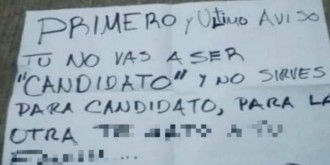 PRIMERO y Ultimo AVISO
TU NO VAS A SER
"CANDIDATO" y NO SIRVES
PARA CANDIDATO, PARA LA
OTRA